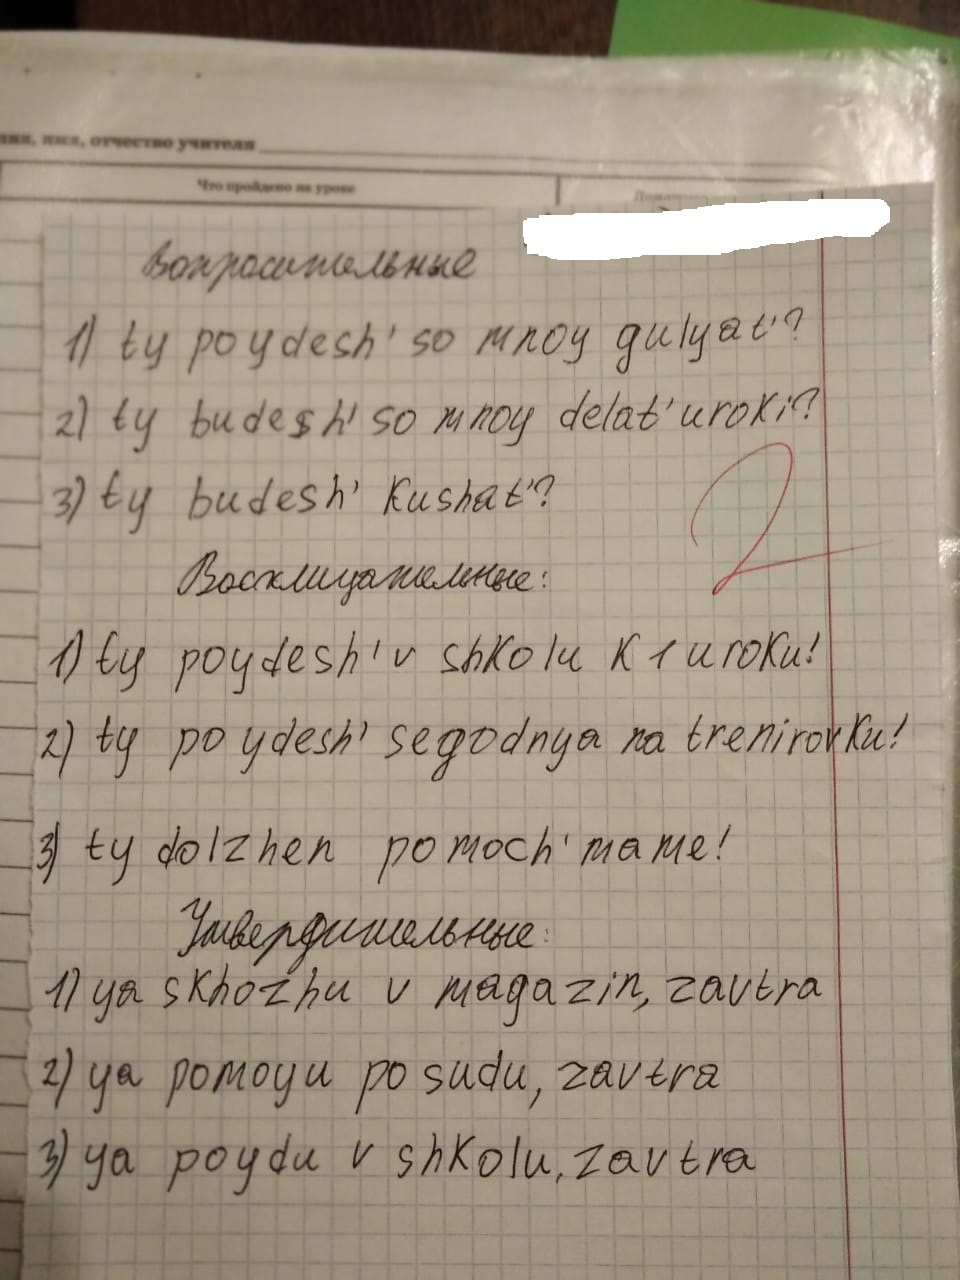 имя, отчество учителя
Что пройдено на уроке
Вопросительные
1) ty poydesh' so mnoy gulyat'?
2) ty budesh' so mnoy delat' uroki?
3) ty budesh' kushat'?
2
Восклицательные:
1) ty poydesh' v shkolu k 1 uroku!
2) ty poydesh' segodnya na trenirovku!
3) ty dolzhen pomoch' mame!
Утвердительные:
1) ya skhozhu v magazin, zavtra
2) ya pomoyu posudu, zavtra
3) ya poydu v shkolu, zavtra